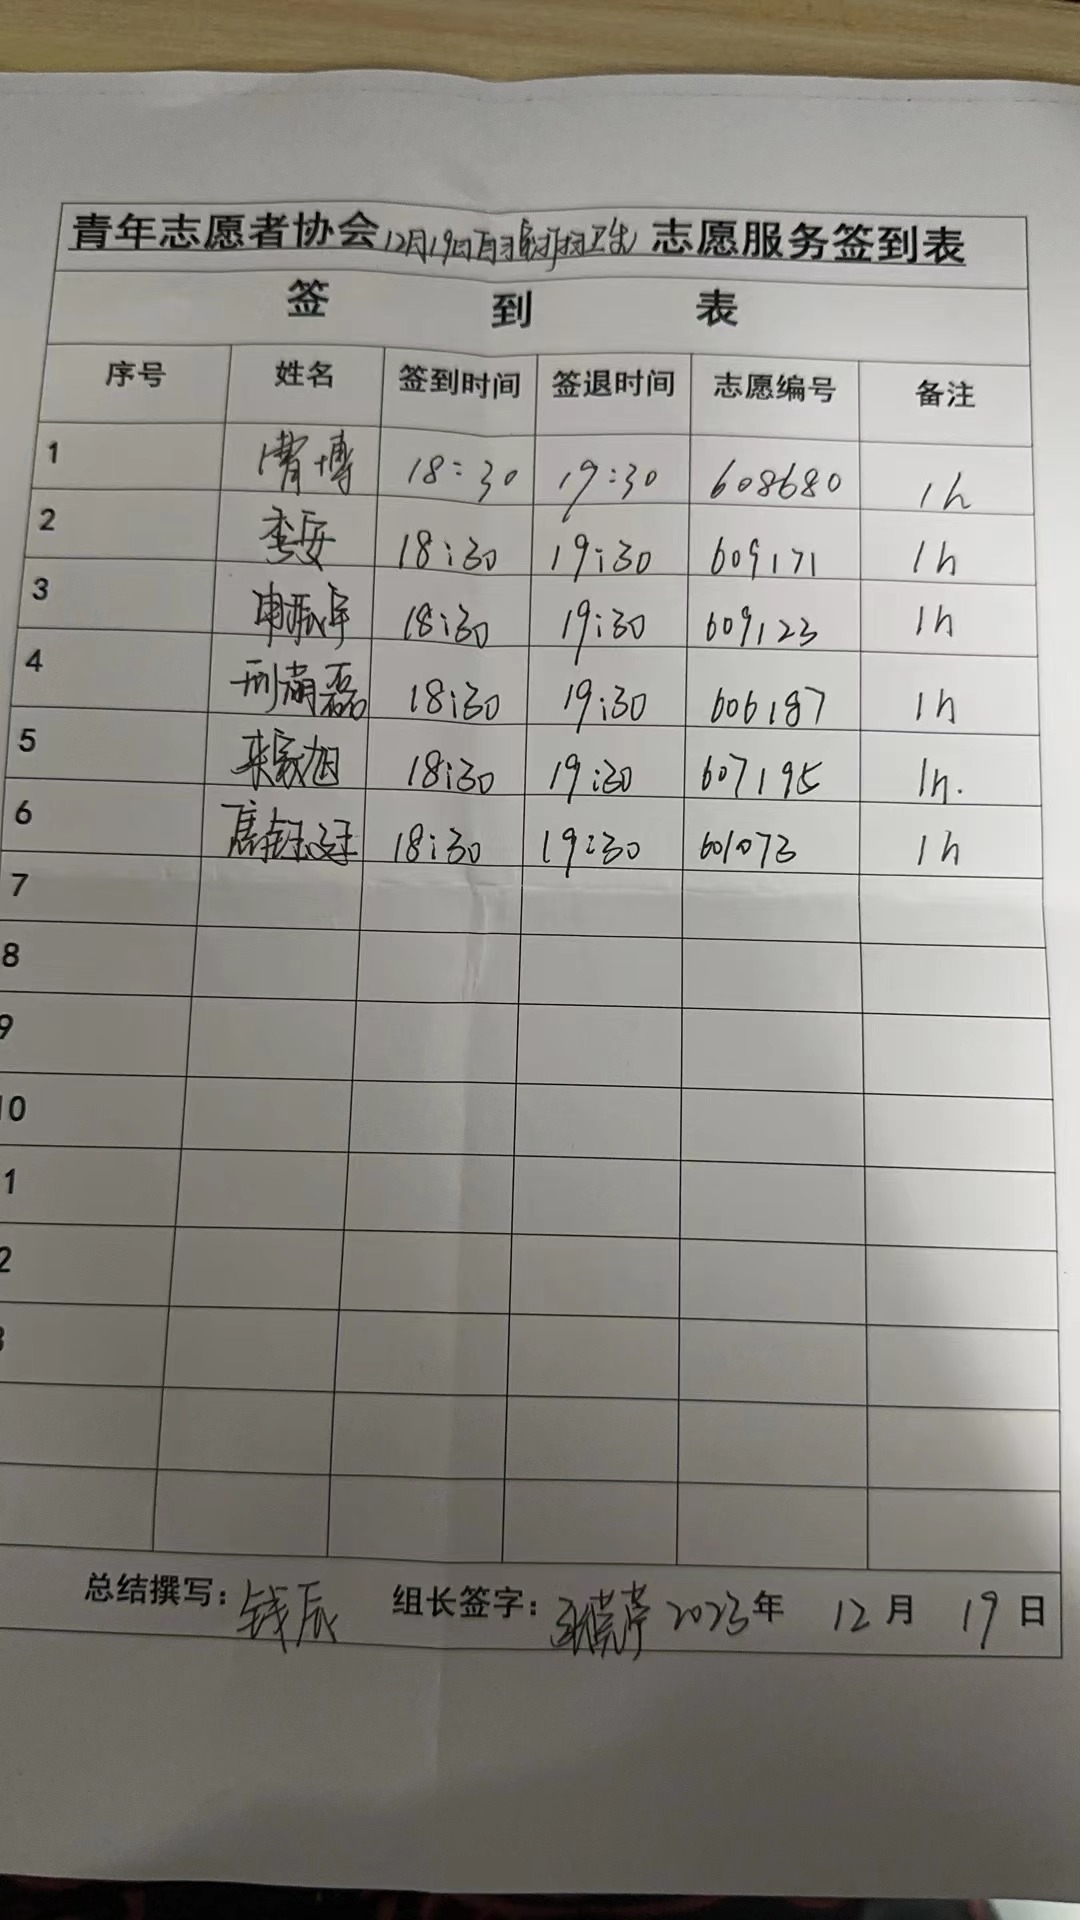 青年志愿者协会12月19日自习室打扫卫生志愿服务签到表
签 到 表
序号 姓名 签到时间 签退时间 志愿编号 备注
1 博 18:30 19:30 608680 1h
2 李安 18:30 19:30 609171 1h
3 申振宇 18:30 19:30 609123 1h
4 磊 18:30 19:30 606187 1h
5 家旭 18:30 19:30 607195 1h.
6 18:30 19:30 601073 1h
7
8
9
10
1
2
3
总结撰写: 钱辰 组长签字: 2023年 12月 19日